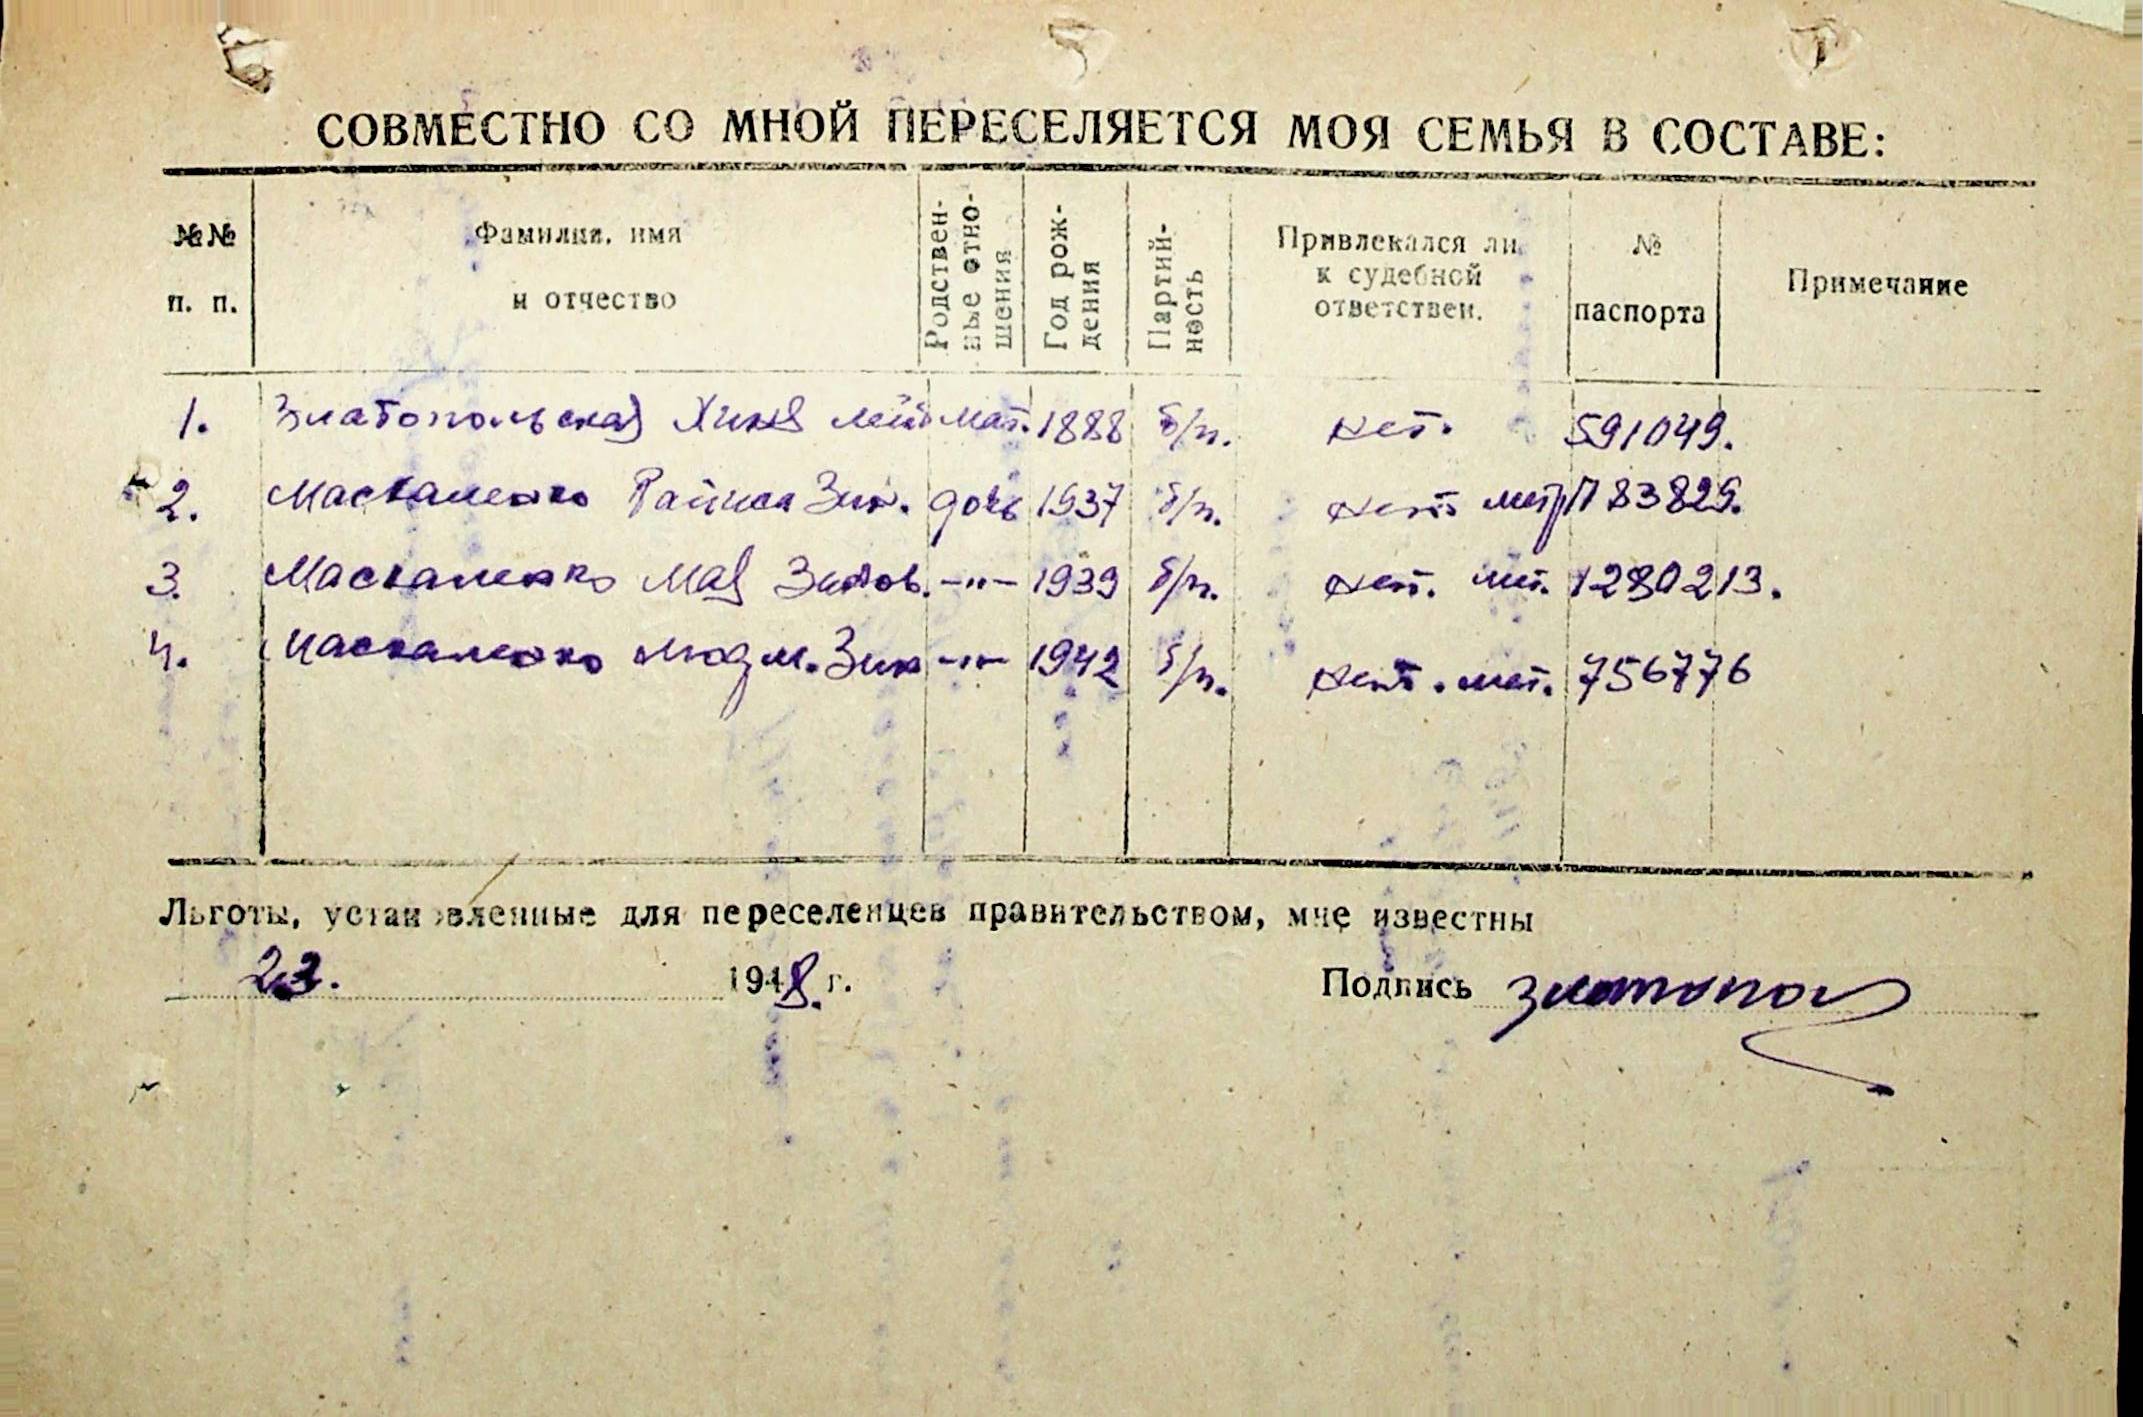 СОВМЕСТНО СО МНОЙ ПЕРЕСЕЛЯЕТСЯ МОЯ СЕМЬЯ В СОСТАВЕ:
№№ п. п. Фамилия, имя и отчество Родствен-ные отно-шения Год рож-дения Партий-ность Привлекался ли к судебной ответствен. № паспорта Примечание
1. Златопольская Хиня Лей мат. 1888 б/п. нет. 591049.
2. Маскаленко Раиса Зин. дочь 1937 б/п. нет метр 83825.
3. Маскаленко Мая Зинов. -"- 1939 б/п. нет. мет. 1280213.
4. Маскаленко Людм. Зин -"- 1942 б/п. нет. мет. 756776
Льготы, установленные для переселенцев правительством, мне известны
23. 1948. г. Подпись Златопол